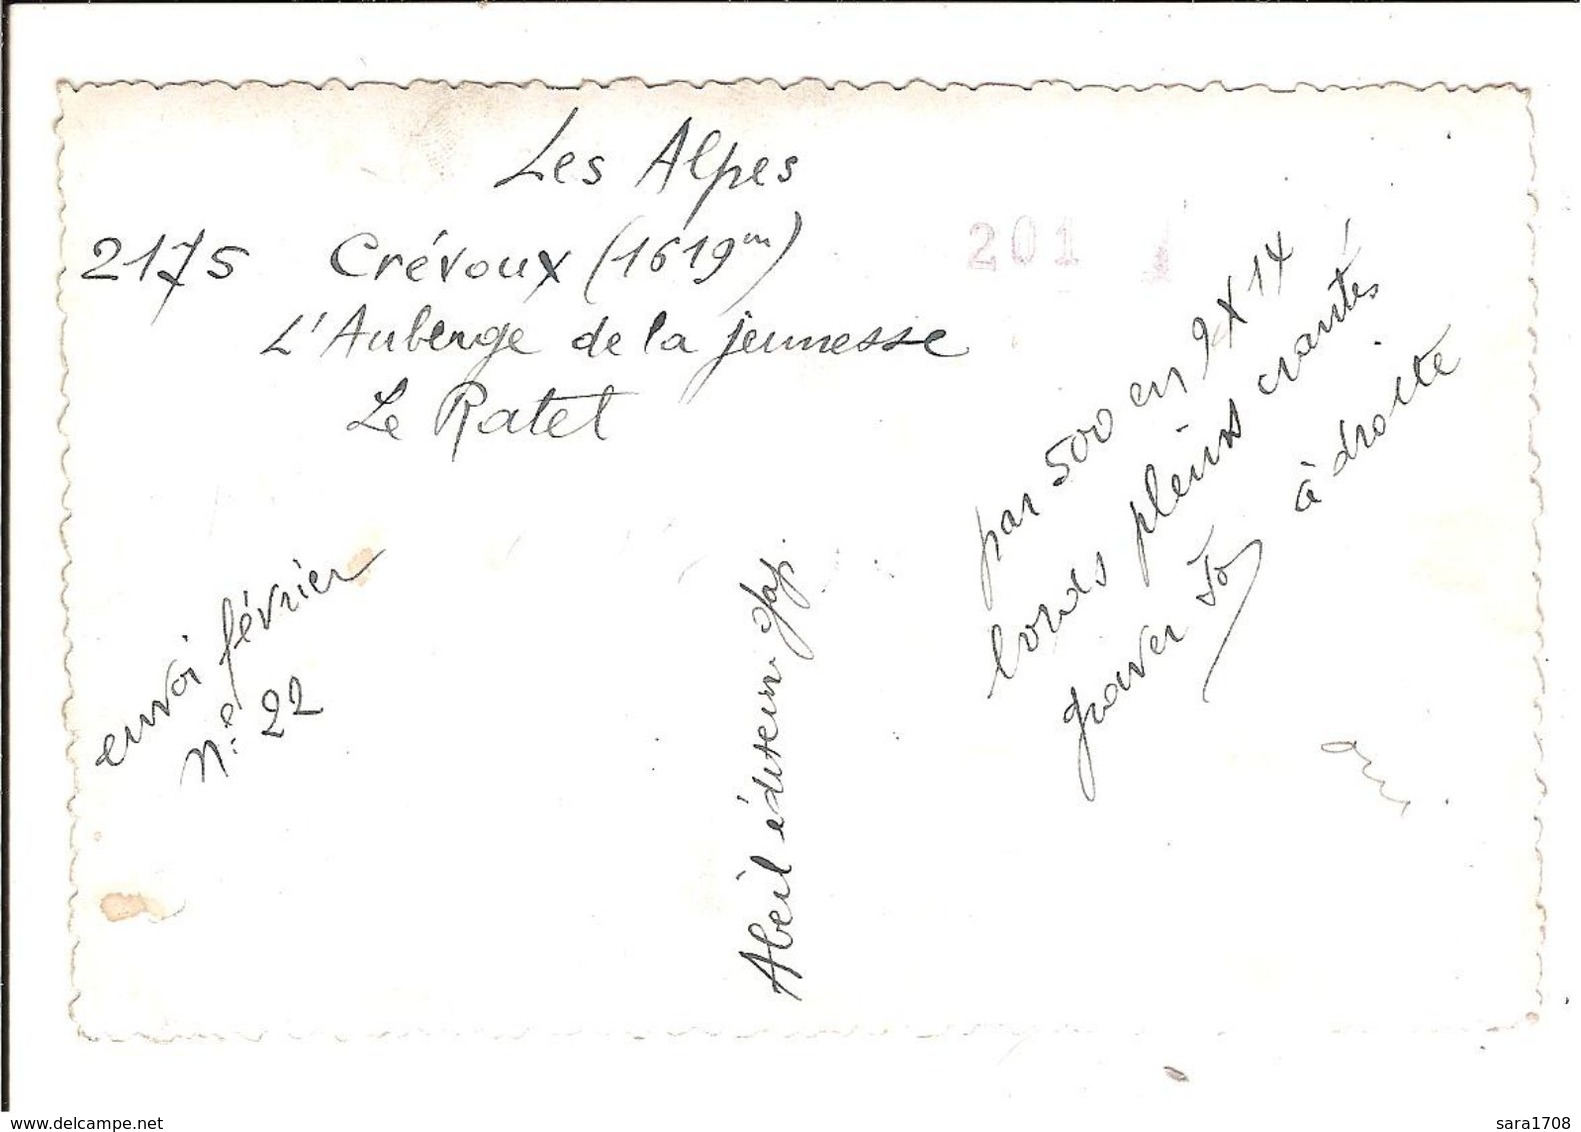 Les Alpes
2175 Crévoux (1619m)
L'Auberge de la jeunesse
Le Ratet
201
par 500 en 9X14
bords pleins crantés
graver à droite
envoi février
n° 22
Abeil éditeur Gap.
www.delcampe.net
sara1708